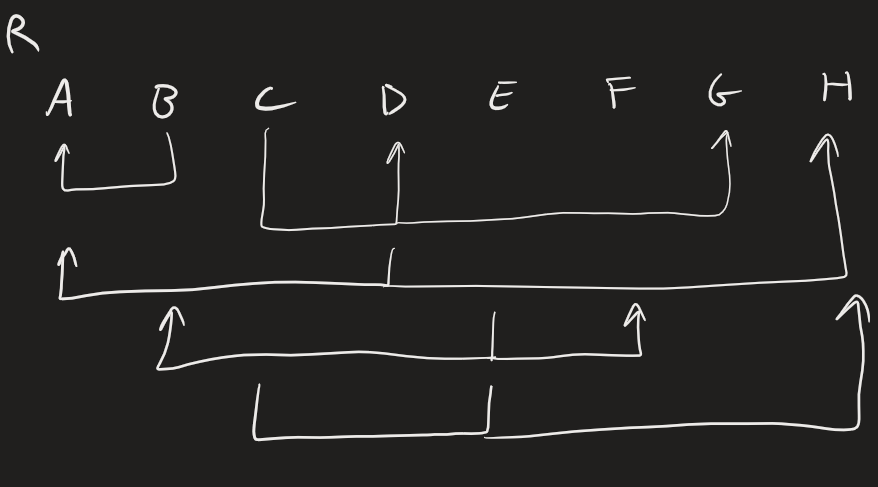 R
A B C D E F G H